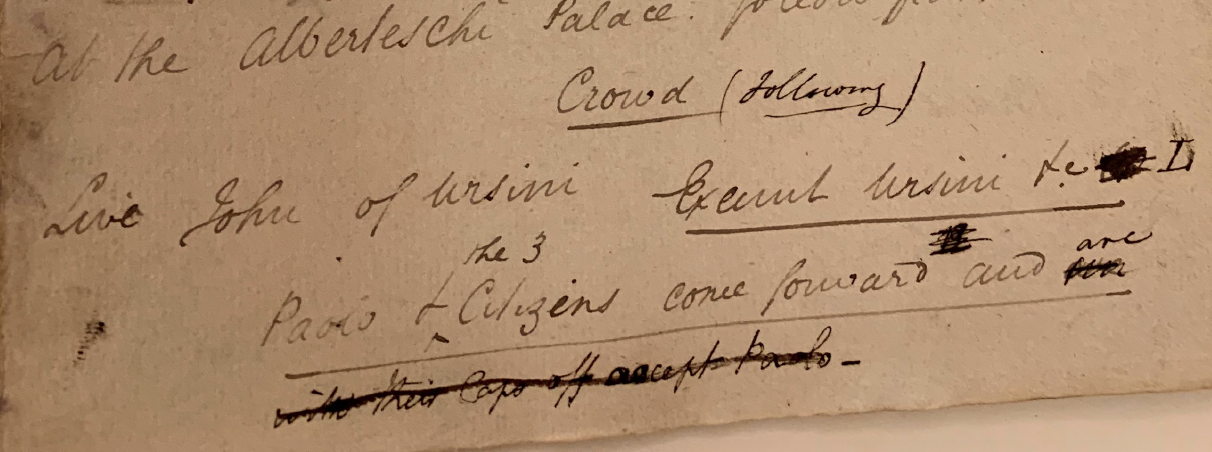 At the Alberteschi Palace. follow
Crowd (following)
Live John of Ursini Exeunt Ursini &c L
the 3 are
Paolo & Citizens come forward and
with their Caps off except Paolo -